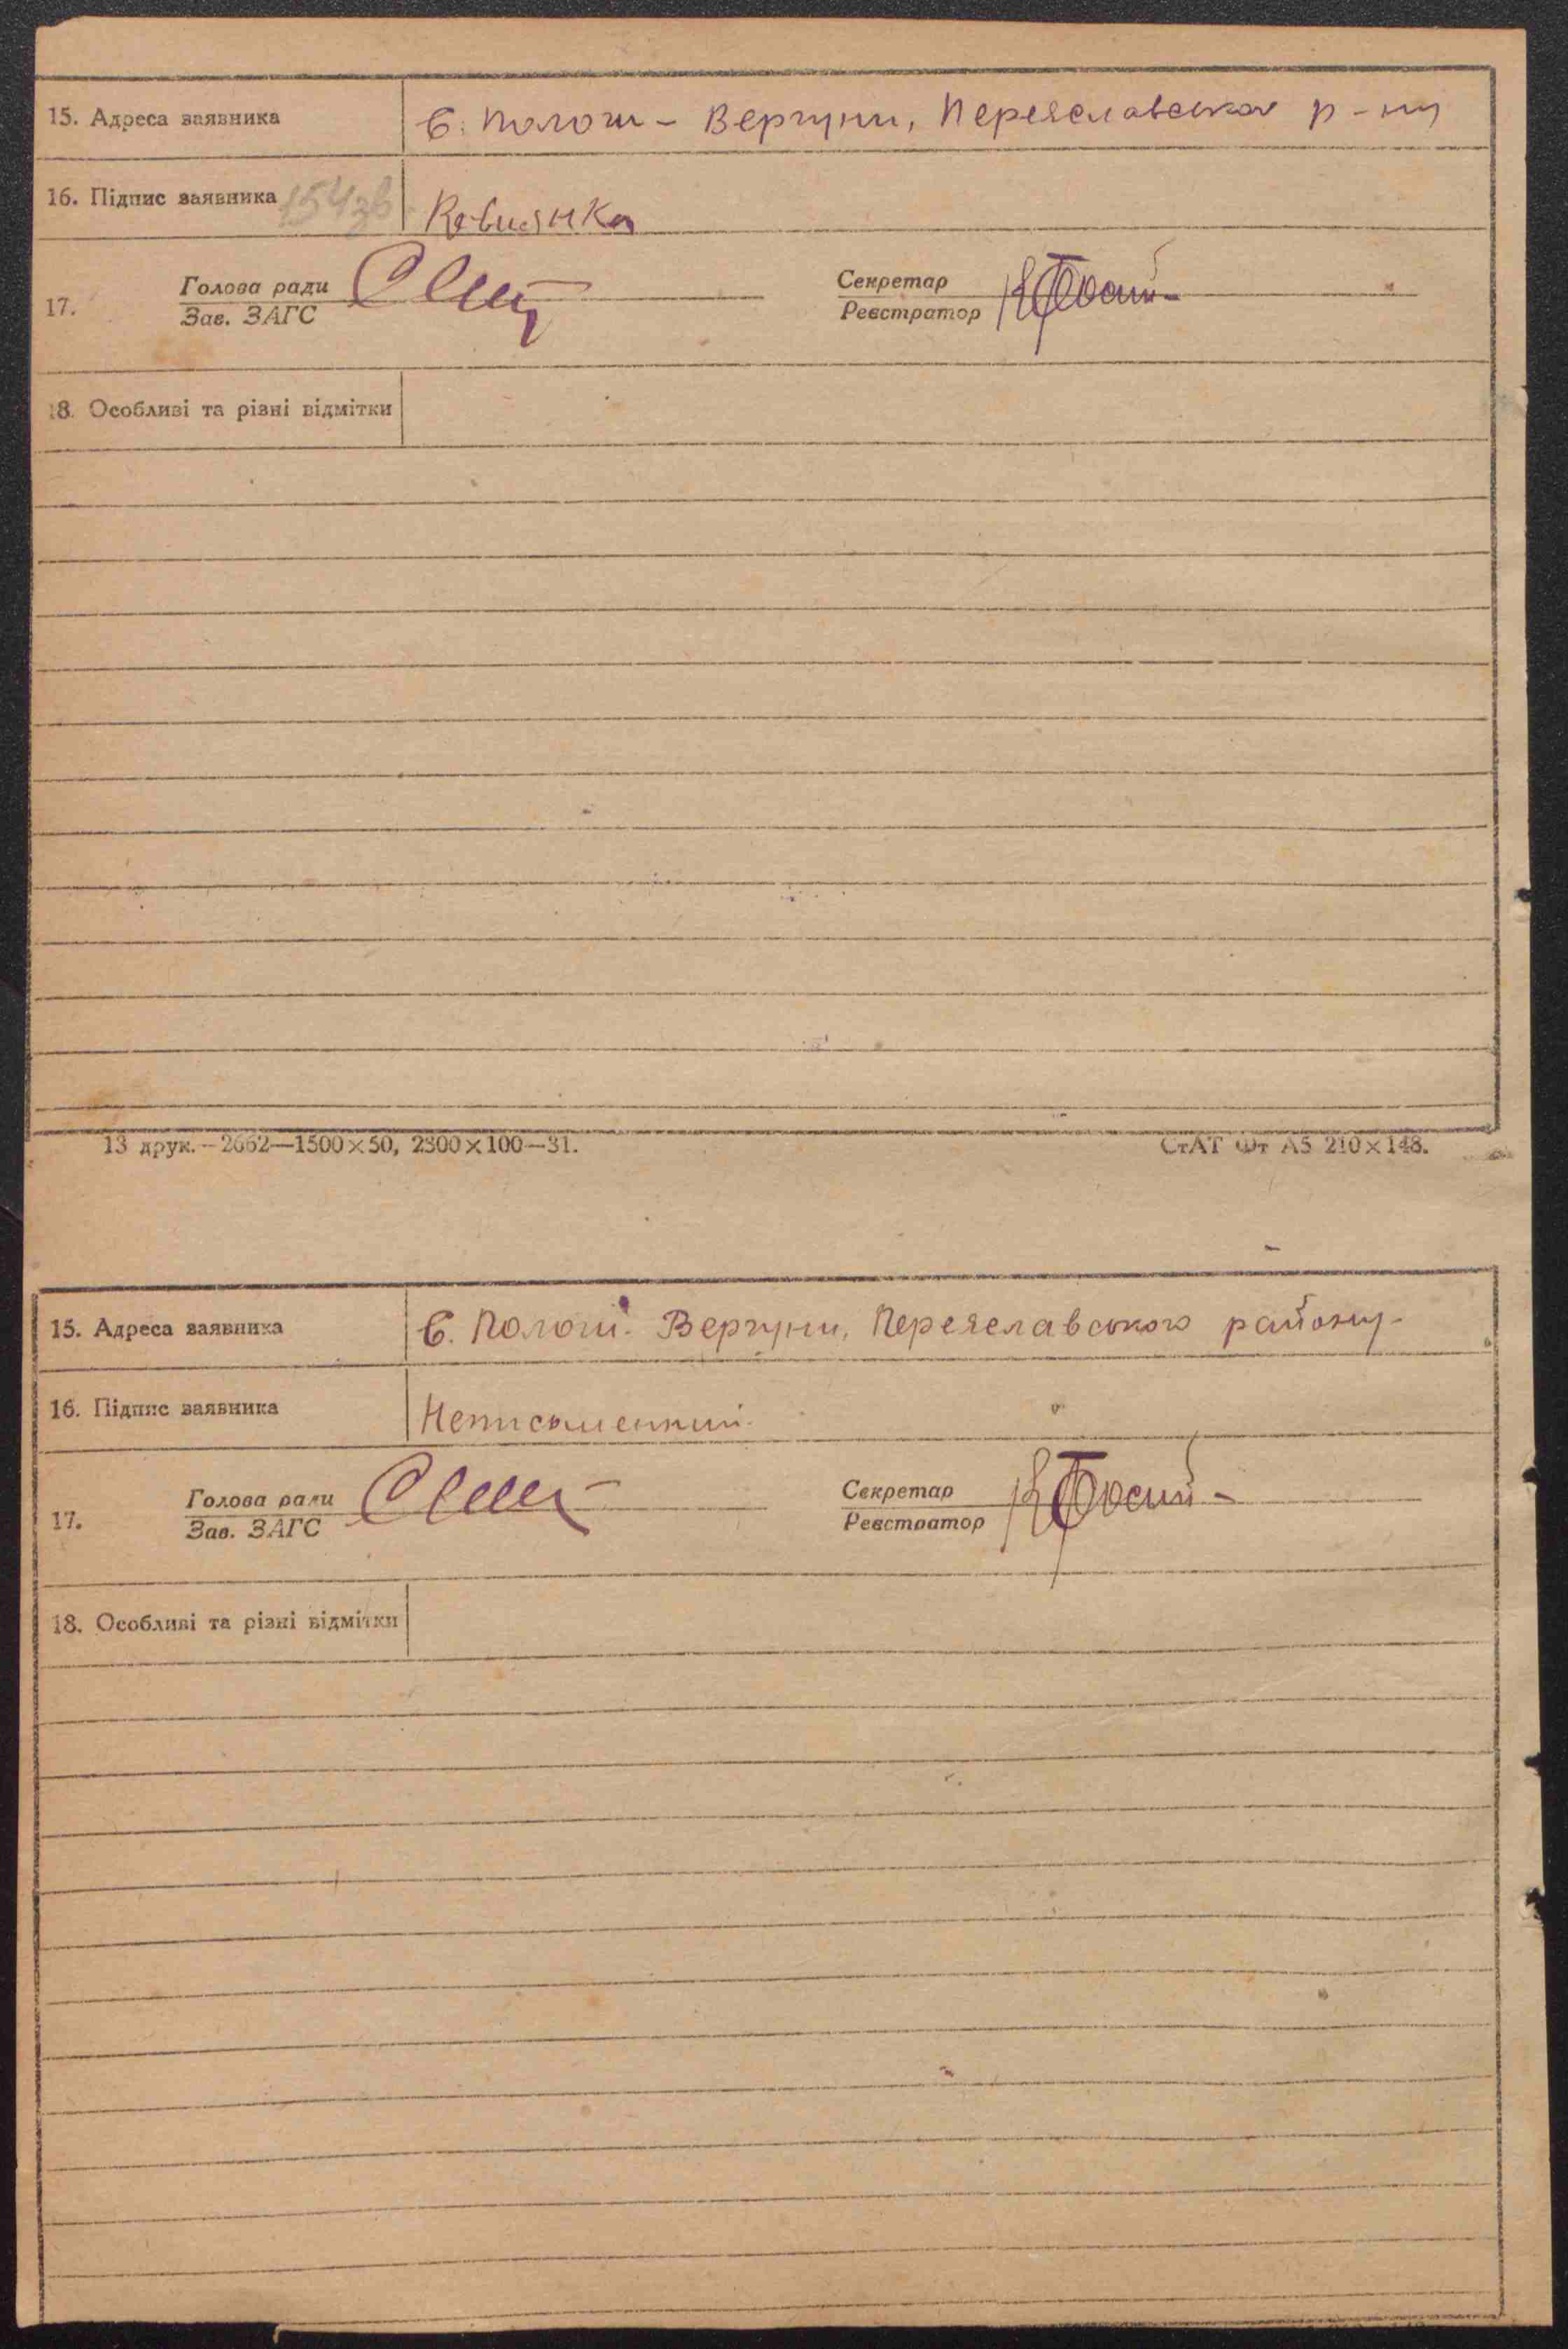 15. Адреса заявника С. Пологи - Вергуни, Переяславського р-ну
16. Підпис заявника 154зв
17. Голова ради Секретар
Зав. ЗАГС Реєстратор
18. Особливі та різні відмітки
13 друк.—2662—1500×50, 2300×100—31. СтАТ Фт А5 210×148.
15. Адреса заявника С. Пологи. Вергуни, Переяславського району.
16. Підпис заявника Неписьменний.
17. Голова ради Секретар
Зав. ЗАГС Реєстратор
18. Особливі та різні відмітки